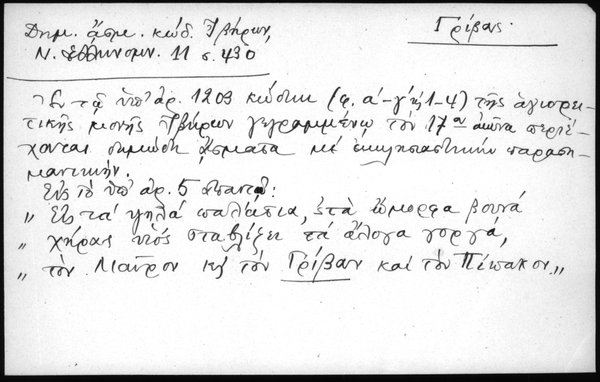 Δημ. ᾄσμ. κώδ. Ἰβήρων, Γρίβας.
Ν. Ἑλληνομν. 11 σ. 430
Ἐν τῷ ὑπ' ἀρ. 1203 κώδικι (φ. α'-γ' ἢ 1-4) τῆς ἁγιορει-
τικῆς μονῆς Ἰβήρων γεγραμμένῳ τὸν 17ον αἰῶνα περιέ-
χονται δημώδη ᾄσματα μὲ ἐκκλησιαστικὴν παραση-
μαντικήν.
Εἰς τὸ ὑπ' ἀρ. 5 ἀπαντᾷ:
„ Εἰς τὰ ψηλὰ παλάτια, 'ς τὰ ὤμορφα βουνὰ
„ χήρας υἱὸς σταβλίζει τὰ ἄλογα γοργά,
„ τὸν Μαῦρον κὴ τὸν Γρίβαν καὶ τὸν Πέπακον „